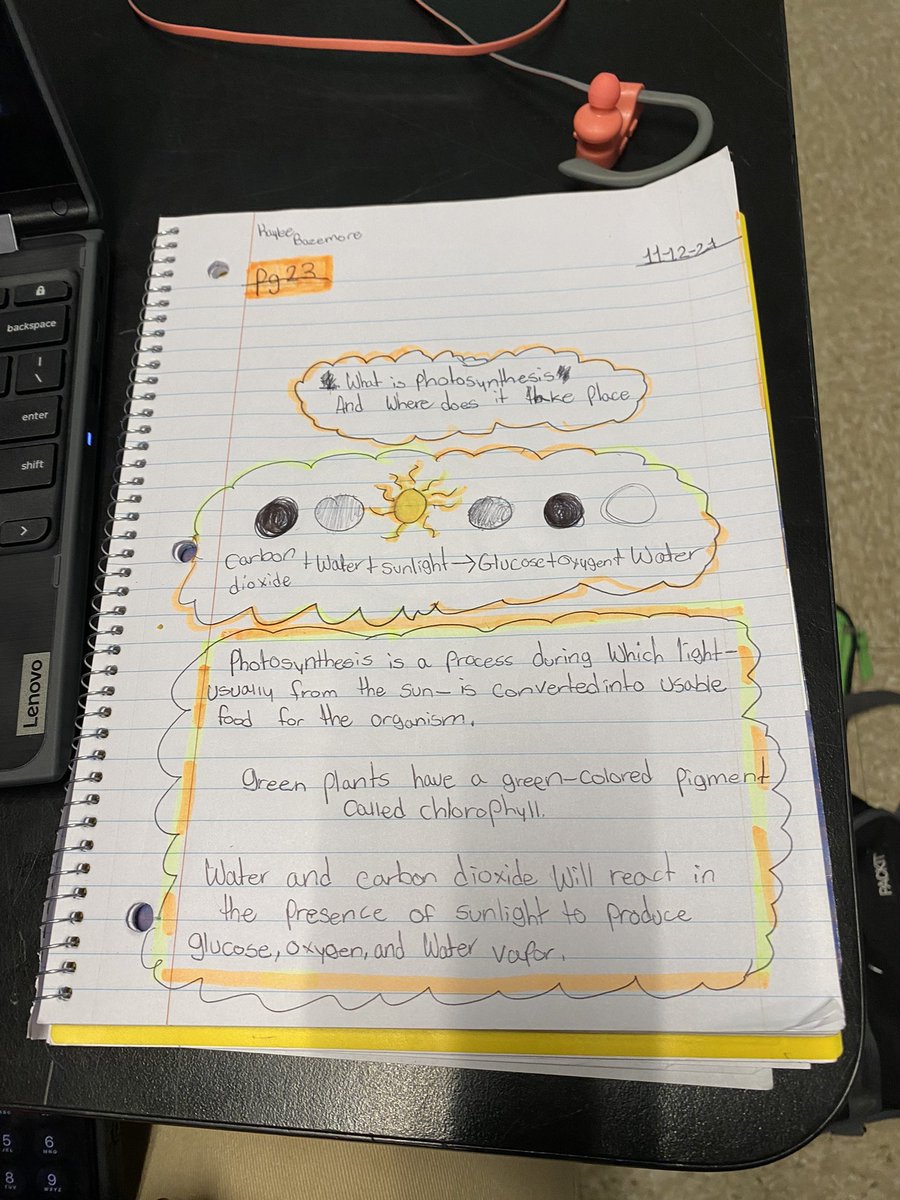 Kaylee
Bazemore
11-12-21
Pg 23
What is photosynthesis
And where does it take place
Carbon dioxide + Water + sunlight → Glucose + oxygen + Water
Photosynthesis is a process during which light-
usually from the sun- is converted into usable
food for the organism.
Green plants have a green-colored pigment
called chlorophyll.
Water and carbon dioxide will react in
the presence of sunlight to produce
glucose, oxygen, and water vapor.
backspace
enter
shift
Lenovo
PACKIT
5 JKL
6 MNO
8 TUV
9 WXYZ